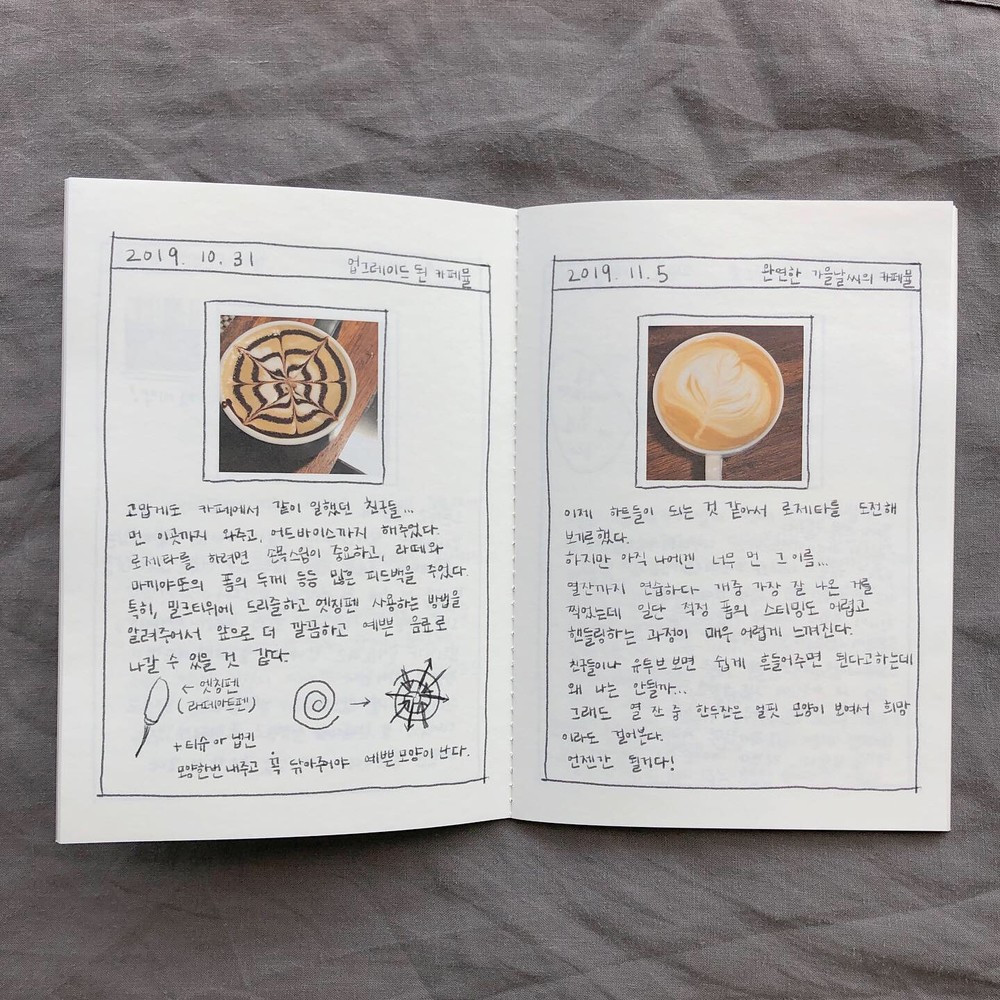 2019. 10. 31
업그레이드 된 카페뮬
고맙게도 카페에서 같이 일했던 친구들...
먼 이곳까지 와주고, 어드바이스까지 해주었다.
로제타를 하려면 손목스윙이 중요하고, 라떼와
마끼야또의 폼의 두께 등등 많은 피드백을 주었다.
특히, 밀크티위에 드리즐하고 엣칭펜 사용하는 방법을
알려주어서 앞으로 더 깔끔하고 예쁜 음료로
나갈 수 있을 것 같다.
← 엣칭펜
(라떼아트펜)
→
+ 티슈 or 냅킨
모양한번 내주고 꼭 닦아주어야 예쁜모양이 난다.
2019. 11. 5
완연한 가을날씨의 카페뮬
이제 하트들이 되는 것 같아서 로제타를 도전해
보기로했다.
하지만 아직 나에겐 너무 먼 그 이름...
열잔까지 연습하다 개중 가장 잘 나온 거를
찍었는데 일단 적정 폼의 스티밍도 어렵고
핸들링하는 과정이 매우 어렵게 느껴진다.
친구들이나 유투브 보면 쉽게 흔들어주면 된다고하는데
왜 나는 안될까...
그래도 열 잔 중 한두잔은 얼핏 모양이 보여서 희망
이라도 걸어본다.
언젠간 될거다!